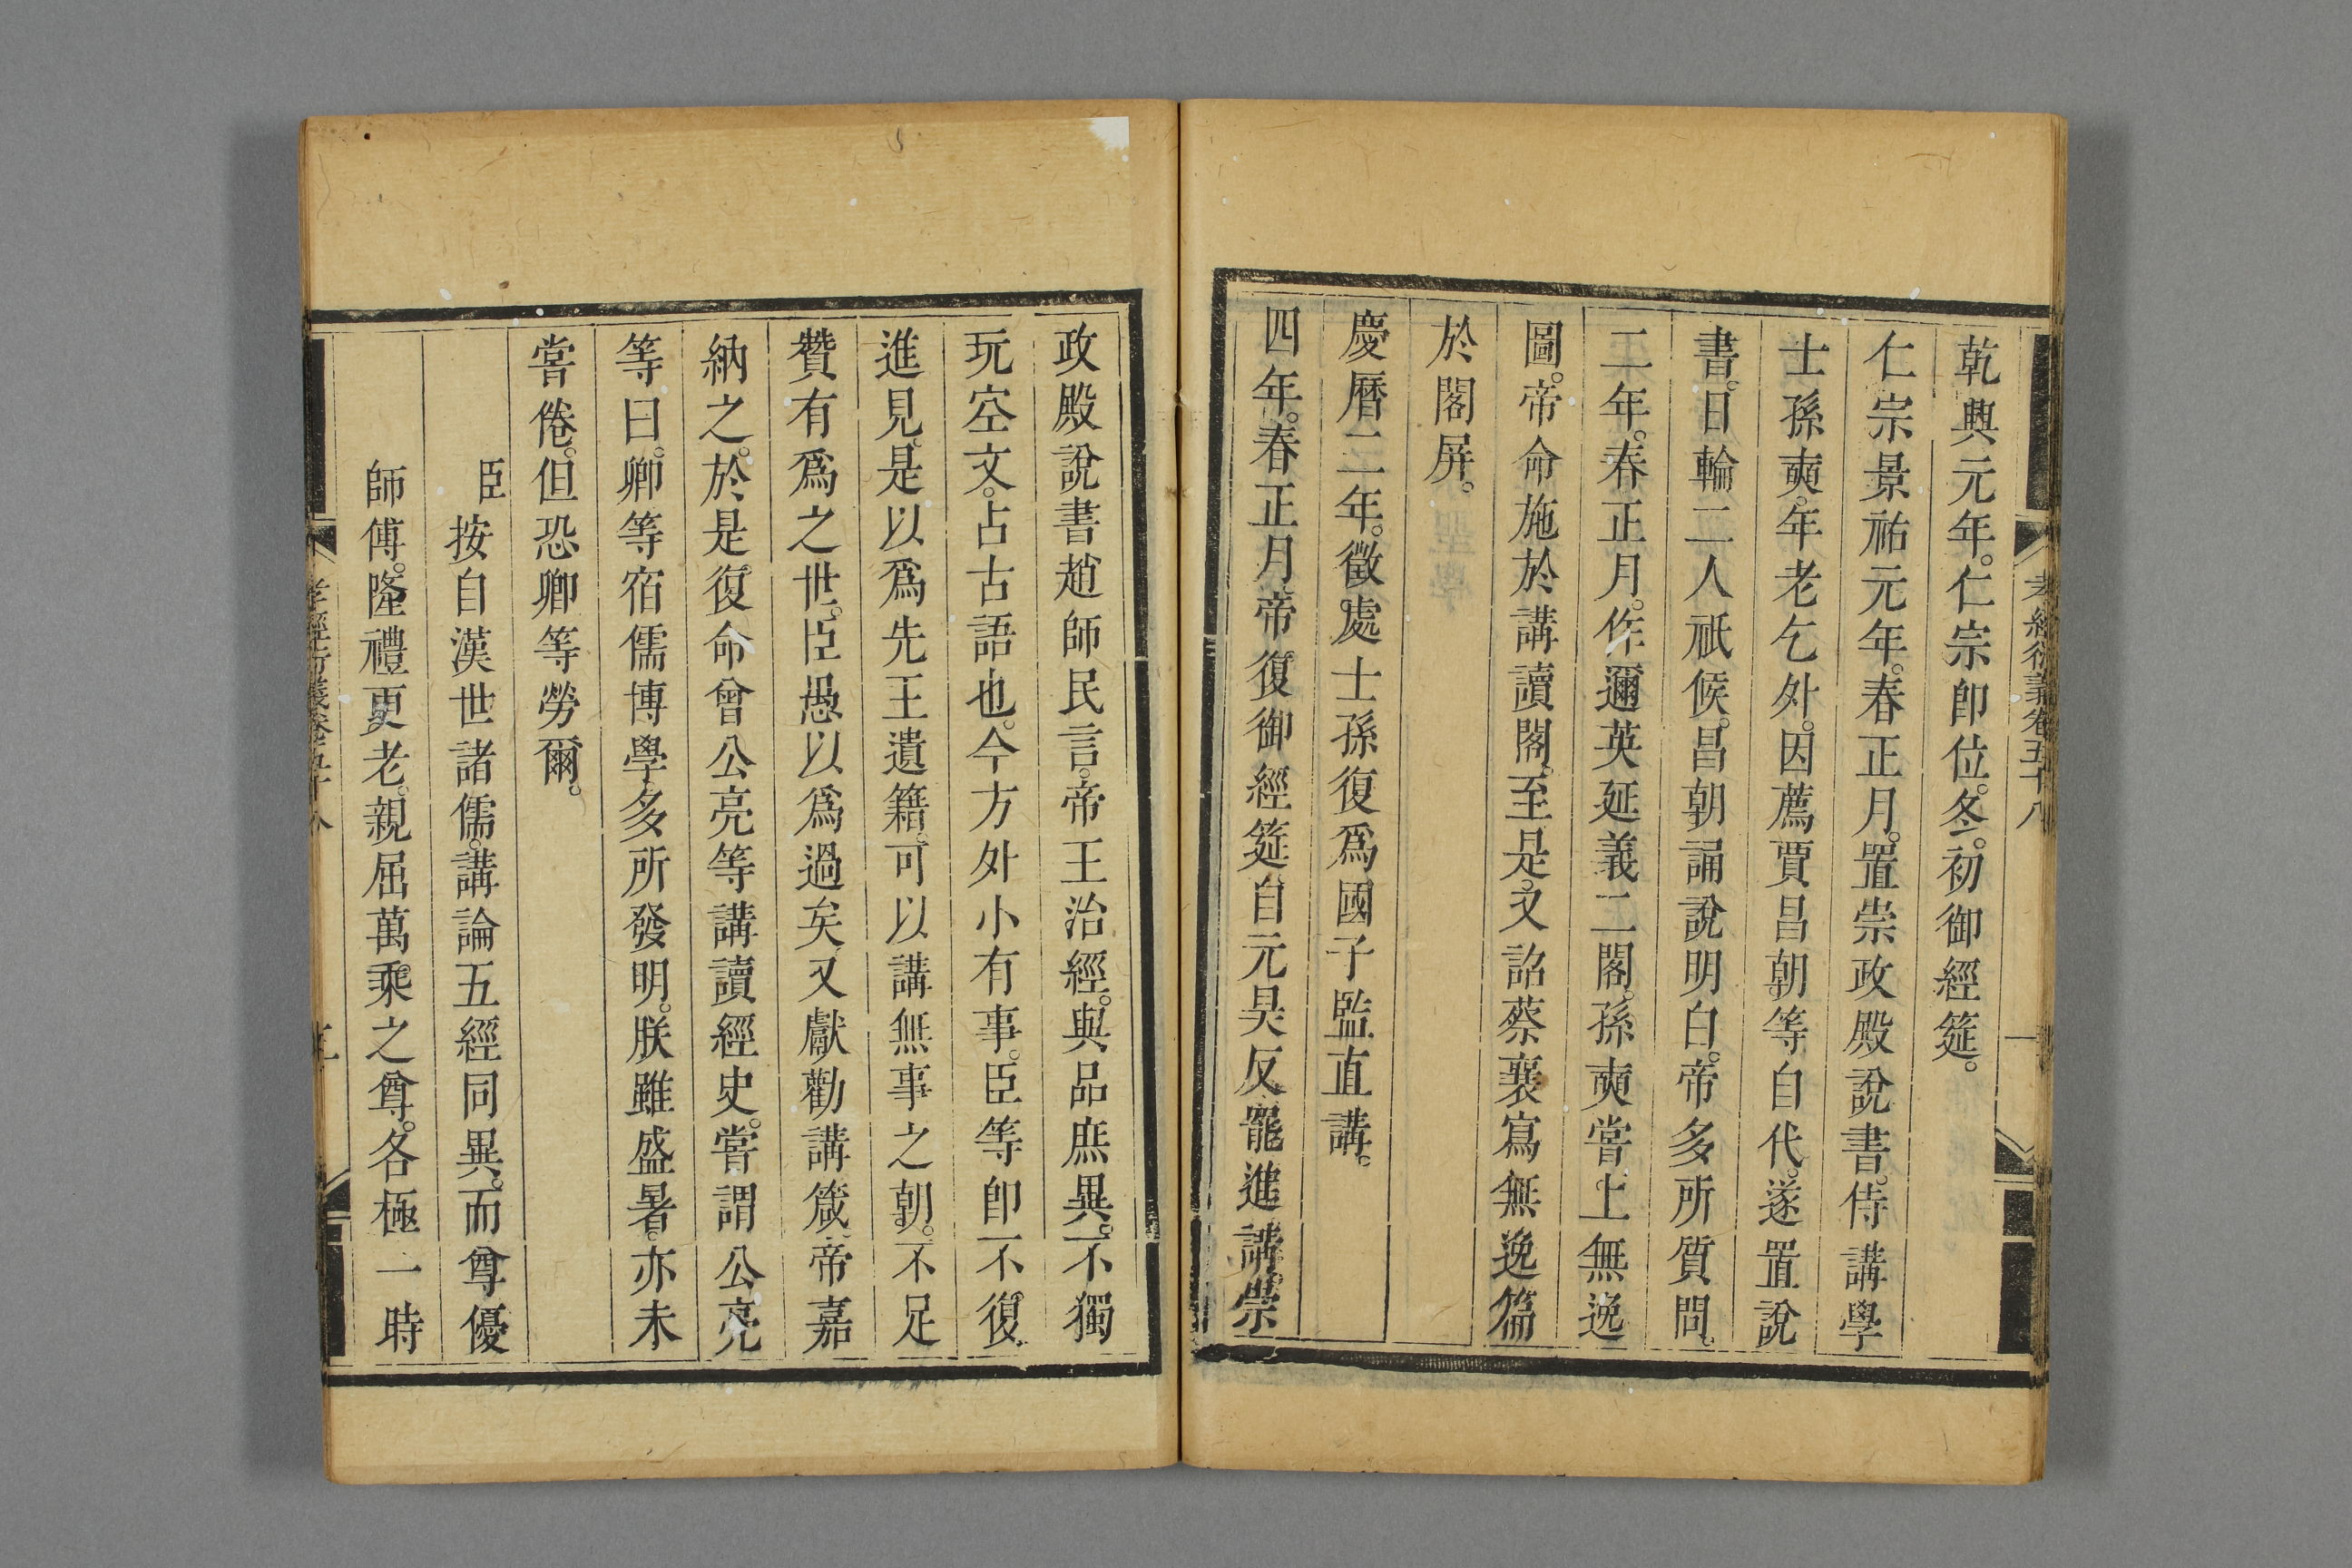 孝經衍義卷五十八
一
乾興元年。仁宗卽位。冬。初御經筵。
仁宗景祐元年。春正月。置崇政殿說書。侍講學
士孫奭。年老乞外。因薦賈昌朝等自代。遂置說
書。日輪二人祇候。昌朝誦說明白。帝多所質問。
二年。春正月。作邇英延義二閣。孫奭嘗上無逸
圖。帝命施於講讀閣。至是。又詔蔡襄寫無逸篇
於閣屏。
慶曆二年。徵處士孫復爲國子監直講。
四年。春正月。帝復御經筵。自元昊反。罷進講。崇
政殿說書趙師民言。帝王治經。與品庶異。不獨
玩空文。占古語也。今方外小有事。臣等卽不復
進見。是以爲先王遺籍。可以講無事之朝。不足
贊有爲之世。臣愚以爲過矣。又獻勸講箴。帝嘉
納之。於是復命曾公亮等講讀經史。嘗謂公亮
等曰。卿等宿儒博學。多所發明。朕雖盛暑。亦未
嘗倦。但恐卿等勞爾。
臣按自漢世諸儒。講論五經同異。而尊優
師傅。隆禮更老。親屈萬乘之尊。各極一時
孝經衍義卷五十八